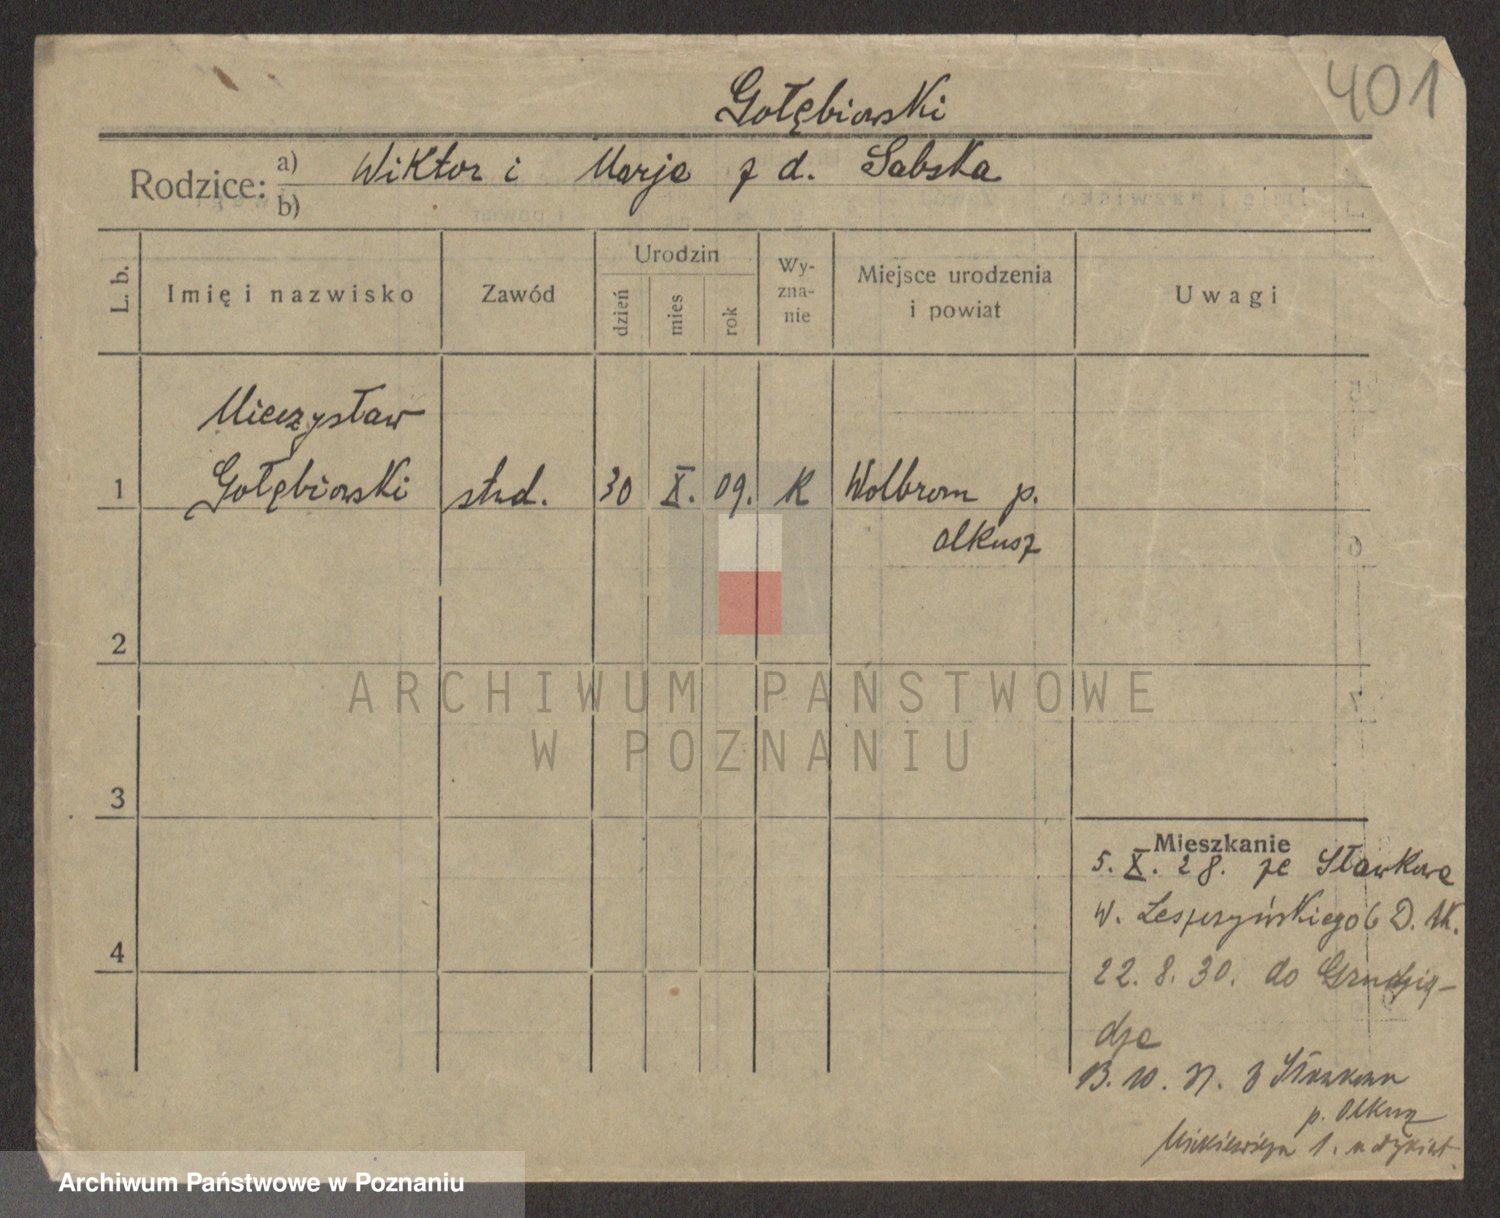 401
Gołębiowski
Rodzice: a) Wiktor i Marja z d. Sabska
b)
L. b.
Imię i nazwisko
Zawód
Urodzin
dzień
mies
rok
Wy-
zna-
nie
Miejsce urodzenia
i powiat
Uwagi
Mieczysław
1 Gołębiowski stud. 30 X. 09. K Wolbrom p.
Olkusz
2
3
4
ARCHIWUM PAŃSTWOWE
W POZNANIU
Mieszkanie
5. X. 28. ze Sławkowa
W. Leszczyńskiego 6 D. Ak.
22. 8. 30. do Grudzią-
dza
13. 10. 31. z Sławkowa
p. Olkusz
Mickiewicza 1.
Archiwum Państwowe w Poznaniu